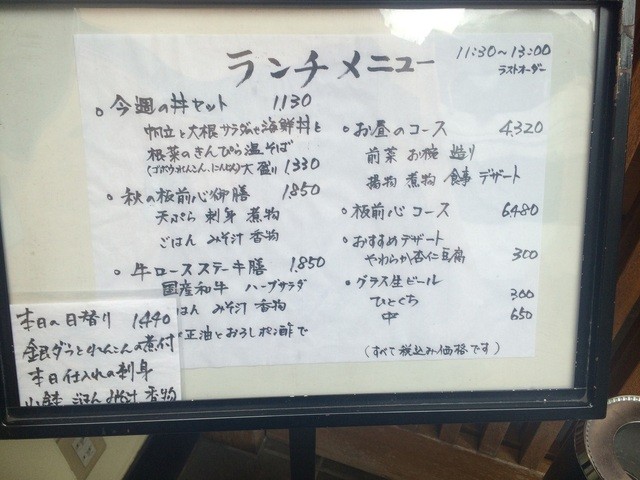 ランチメニュー
11:30~13:00
ラストオーダー
今週の丼セット 1130
帆立と大根サラダの海鮮丼と
根菜のきんぴら温そば
(ゴボウ、れんこん、にんじん) 大盛り 1,330
秋の板前心御膳 1,850
天ぷら 刺身 煮物
ごはん みそ汁 香物
牛ロースステーキ膳 1,850
国産和牛 ハーブサラダ
はん みそ汁 香物
正油とおろしポン酢で
お昼のコース 4,320
前菜 お椀 造り
揚物 煮物 食事 デザート
板前心コース 6,480
おすすめデザート
やわらか杏仁豆腐 300
グラス生ビール
ひとくち 300
中 650
(すべて税込み価格です)
本日の日替り 1440
銀ダラとれんこんの煮付
本日仕入れの刺身
小鉢 ごはん みそ汁 香物